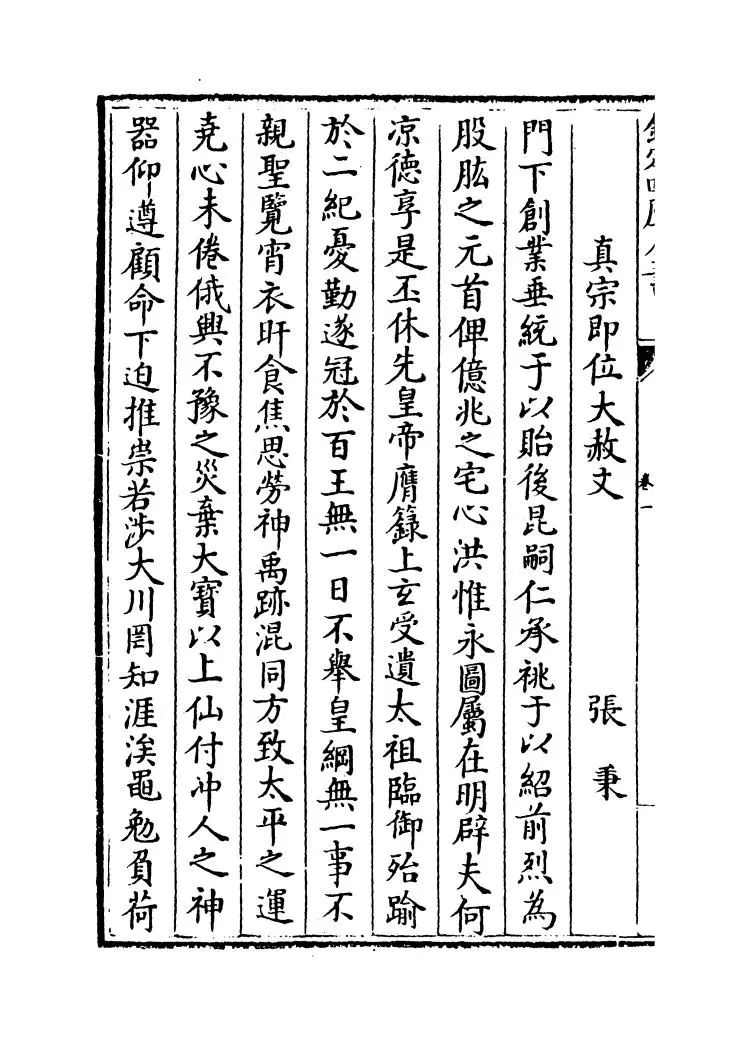 真宗即位大赦文　張秉
門下創業垂統于以貽後昆嗣仁承祧于以紹前烈為
股肱之元首俾億兆之宅心洪惟永圖屬在明辟夫何
凉德享是丕休先皇帝膺籙上玄受遺太祖臨御殆踰
於二紀憂勤遂冠於百王無一日不舉皇綱無一事不
親聖覽宵衣旰食焦思勞神禹跡混同方致太平之運
堯心未倦俄興不豫之災棄大寶以上仙付冲人之神
器仰遵顧命下迫推崇若涉大川罔知涯涘黽勉負荷